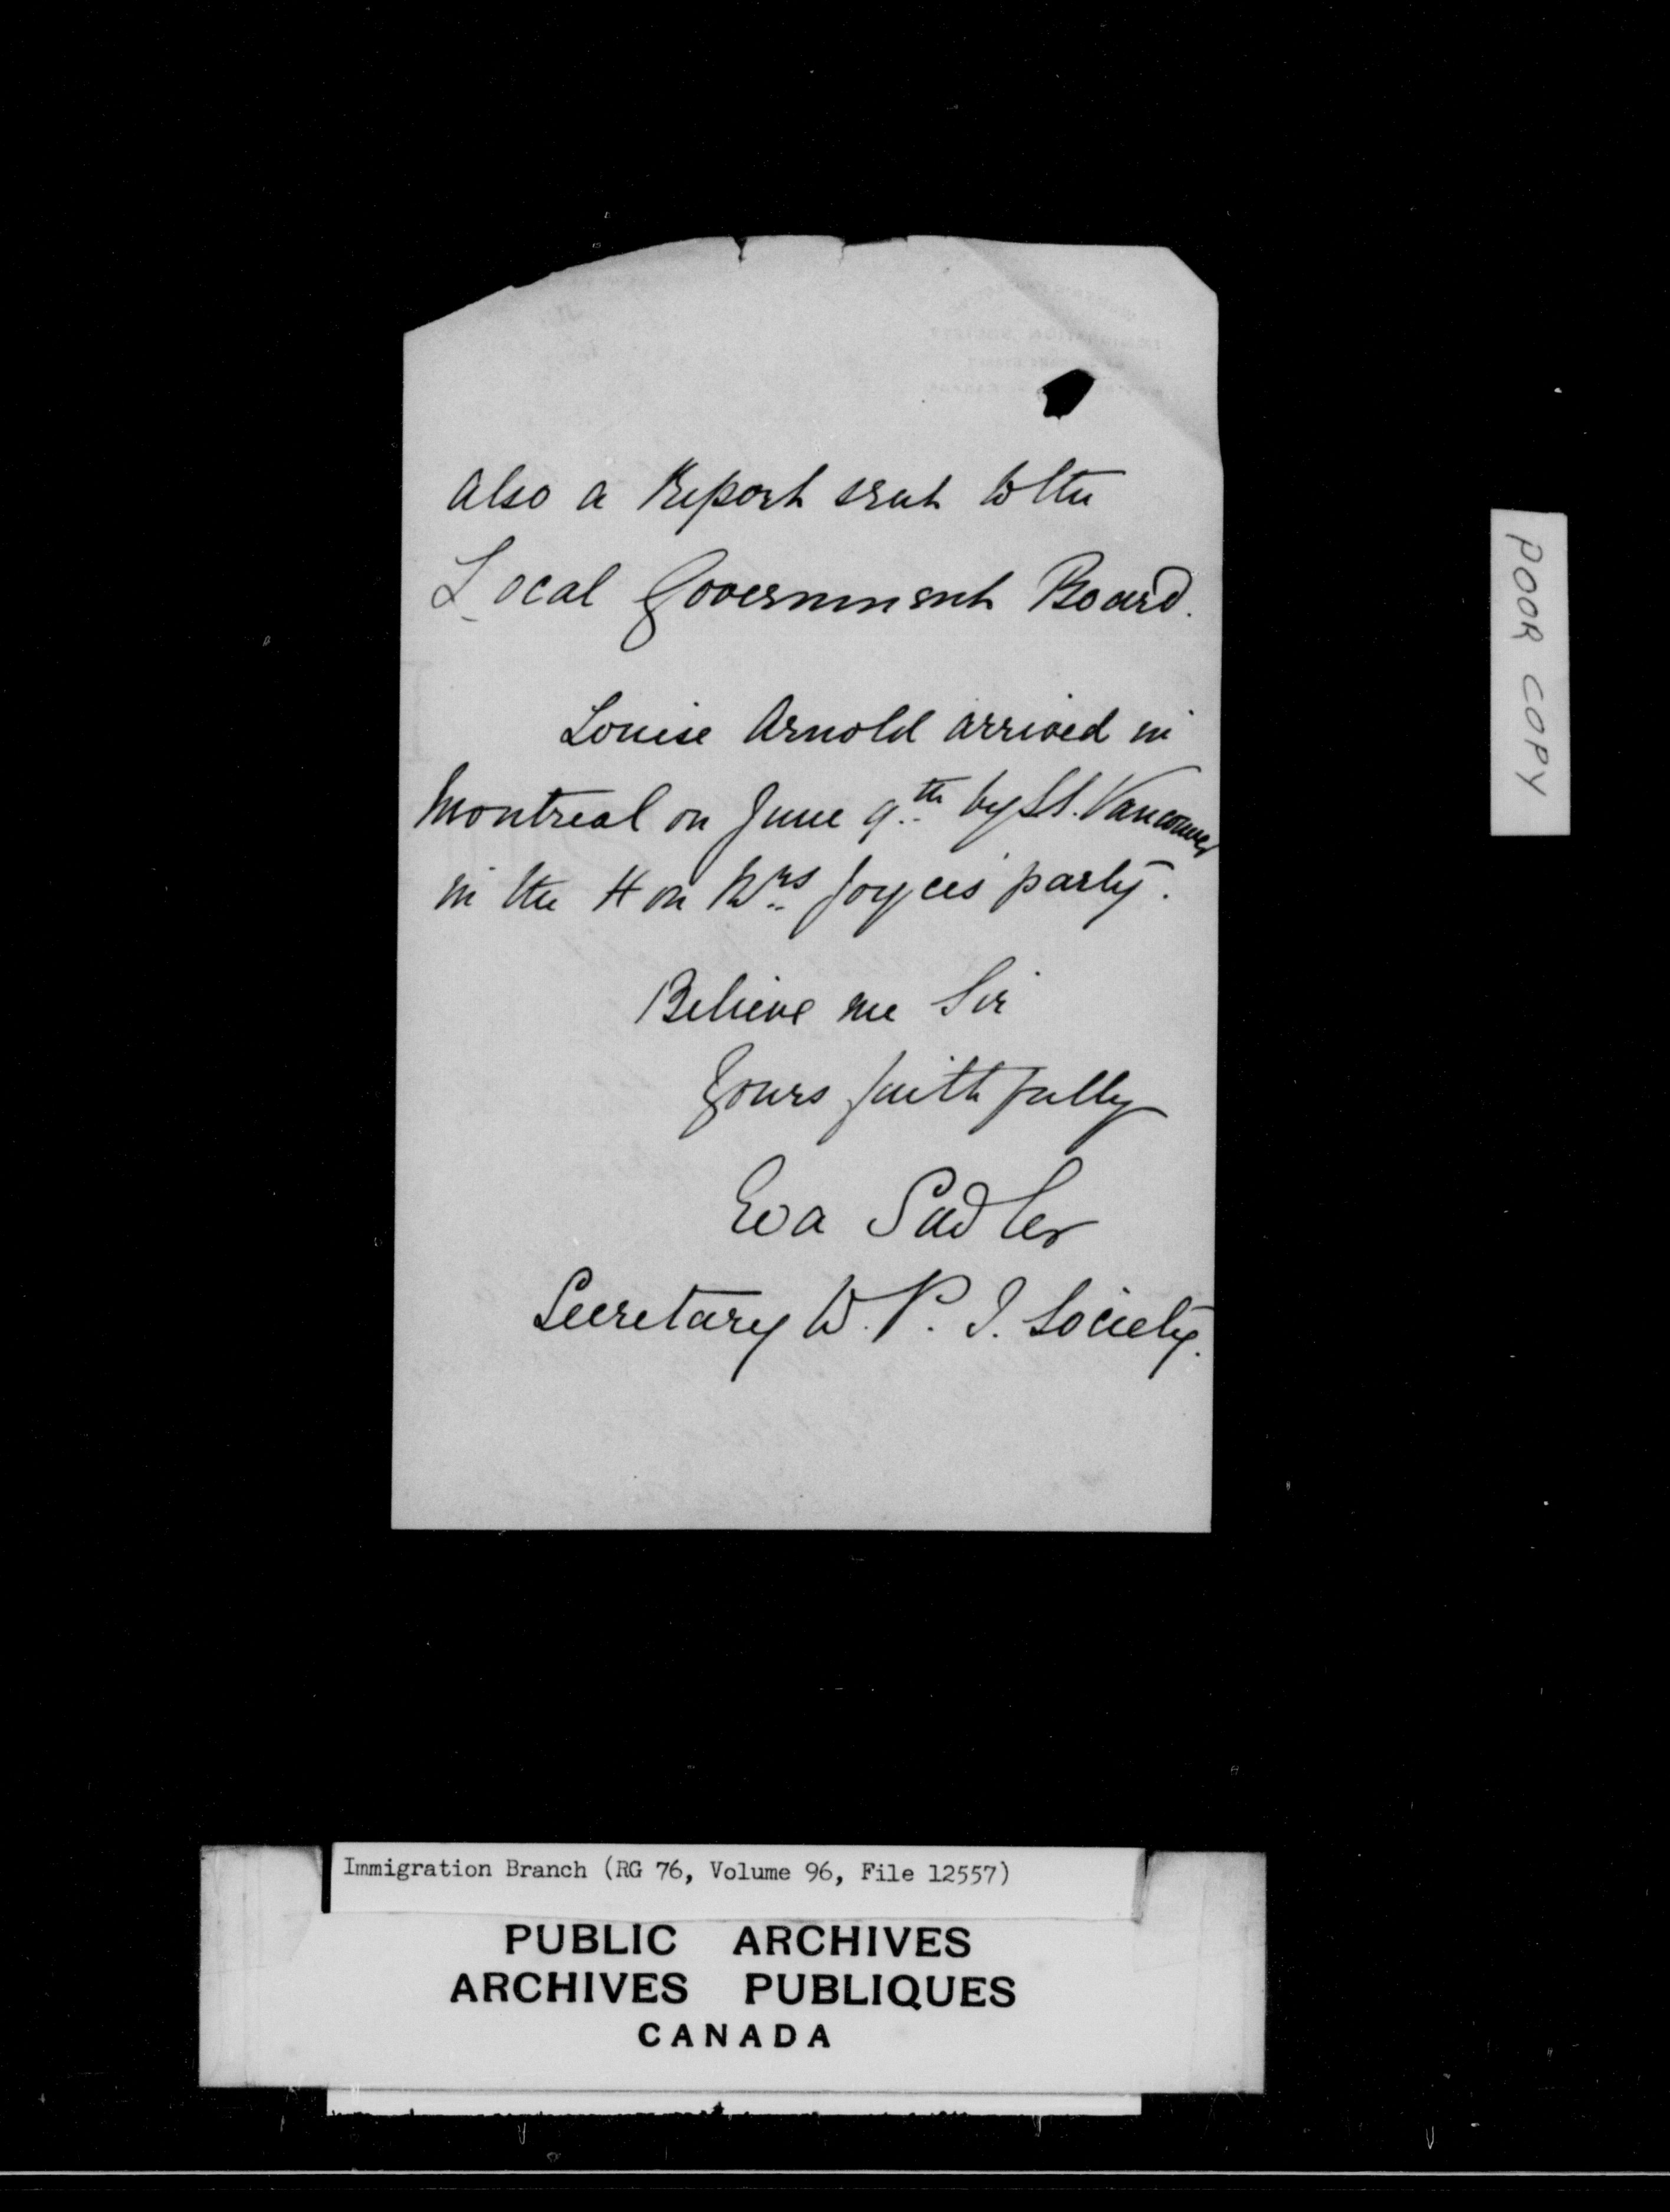 also a Report sent to the
Local Government Board.
Louise Arnold arrived in
Montreal on June 9th by SS. Vancouver
in the Hon Mrs Joyces party.
Believe me Sir
Yours faithfully
Eva Sadler
Secretary W. P. I. Society.
POOR COPY
Immigration Branch (RG 76, Volume 96, File 12557)
PUBLIC ARCHIVES
ARCHIVES PUBLIQUES
CANADA